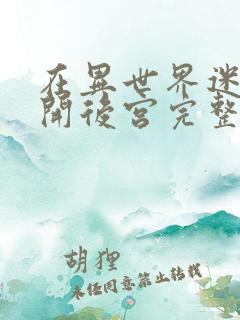 在異世界迷
開後宮完整
胡狸
未经同意禁止转载